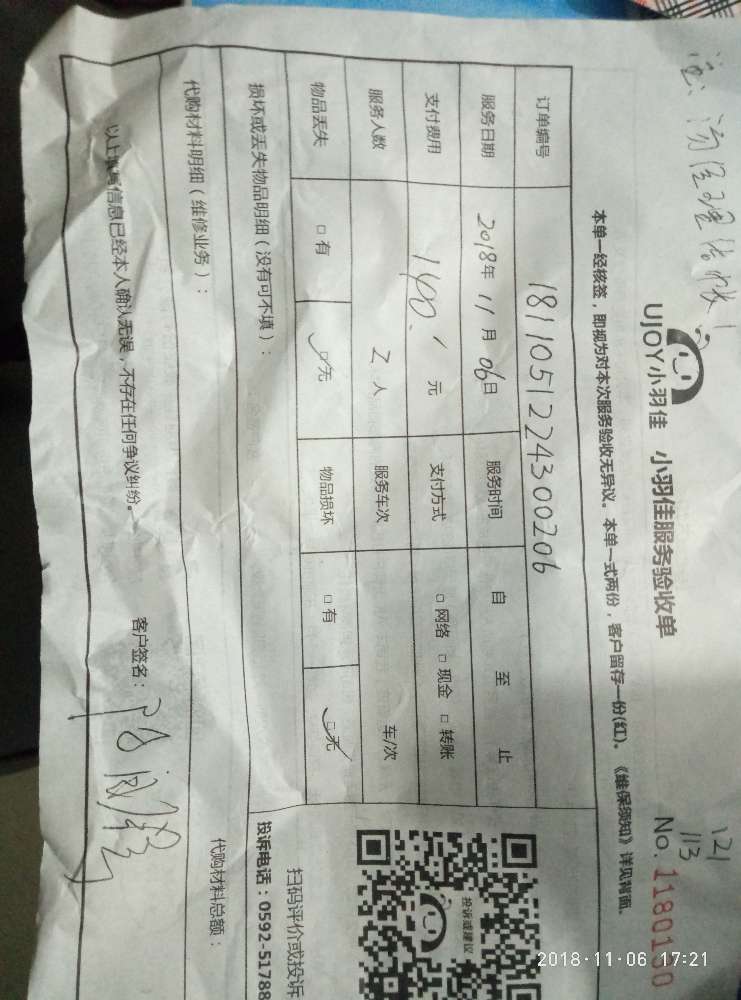 121
113
UJOY小羽佳 小羽佳服务验收单 No.
本单一经核签，即视为对本次服务验收无异议。本单一式两份，客户留存一份(红)。《维保须知》详见背面。
订单编号 1811051224300206
服务日期 2018年 11 月 06日 服务时间 自 至 止
支付费用 140. 元 支付方式 □网络 □现金 □转账
服务人数 2 人 服务车次 车/次
物品丢失 □有 ☑无 物品损坏 □有 ☑无
损坏或丢失物品明细（没有可不填）：
代购材料明细（维修业务）： 代购材料总额：
以上 信息已经本人确认无误，不存在任何争议纠纷。 客户签名：
投诉或建议
扫码评价或投诉
投诉电话：0592-51788
2018-11-06 17:21